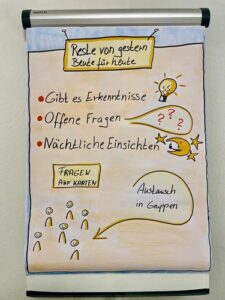 Reste von gestern
Beute für heute
Gibt es Erkenntnisse
Offene Fragen
? ? ?
Nächtliche Einsichten
FRAGEN
AUF KARTEN
Austausch
in Gruppen